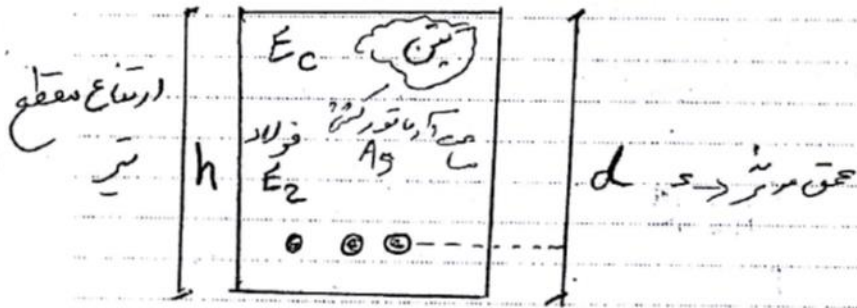 ارتفاع مقطع
تیر
h
Ec
بتن
فولاد
E2
مساحت آرماتور کششی
As
d
عمق موثر d